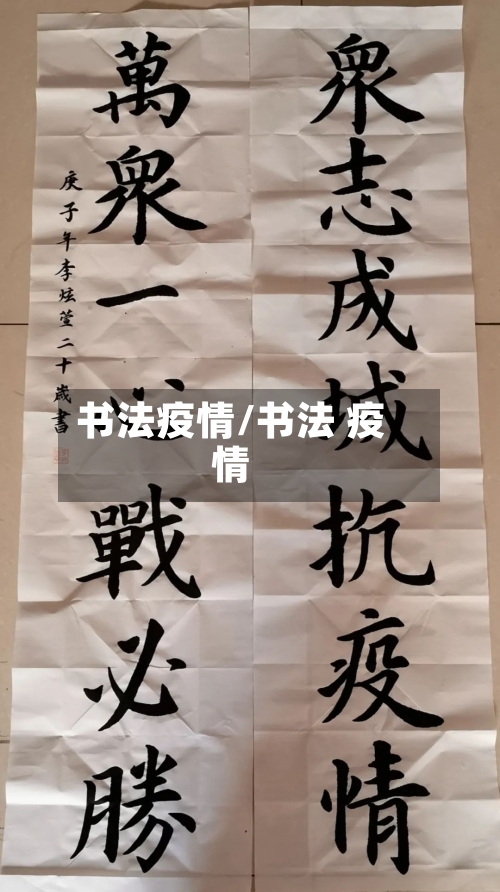 眾志成城抗疫情
萬眾一心戰必勝
庚子年李炫萱二十歲書
书法疫情/书法 疫
情